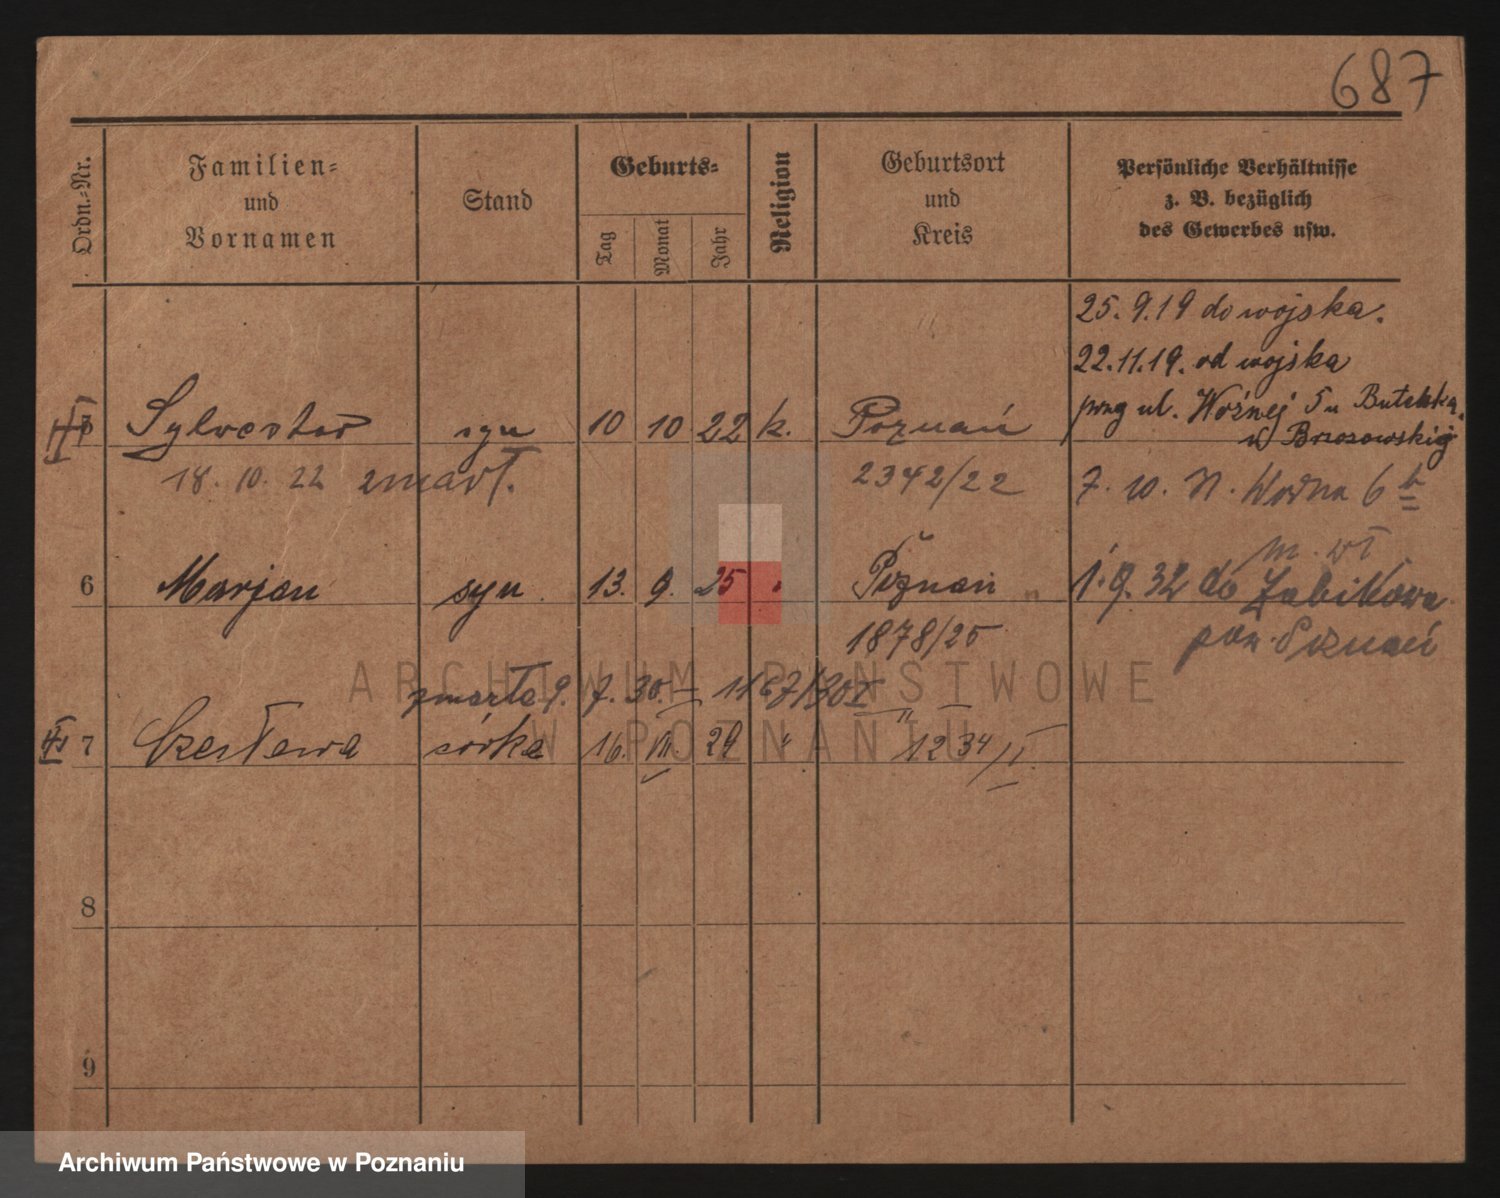 687
Ordn.-Nr.
Familien-
und
Vornamen
Stand
Geburts-
Tag
Monat
Jahr
Religion
Geburtsort
und
Kreis
Persönliche Verhältnisse
z. B. bezüglich
des Gewerbes usw.
25. 9. 19 do wojska.
22. 11. 19. od wojska
ul. Woźnej 5 u Butelska
u Brzozowskiej
5
Sylvester
syn
10
10
22
k.
Poznań
18. 10. 22 zmarł.
2342/22
7. 10. Wodna 6
6
Marjan
syn
13.
9.
25
"
Poznań
1. 9. 32 do Żabikowa
1878/25
pow. Poznań
zmarła 9. 7. 30. 1167/30 I
7
Czesława
córka
16.
VII.
29
"
"
1234/I.
8
9
ARCHIWUM PAŃSTWOWE
W POZNANIU
Archiwum Państwowe w Poznaniu